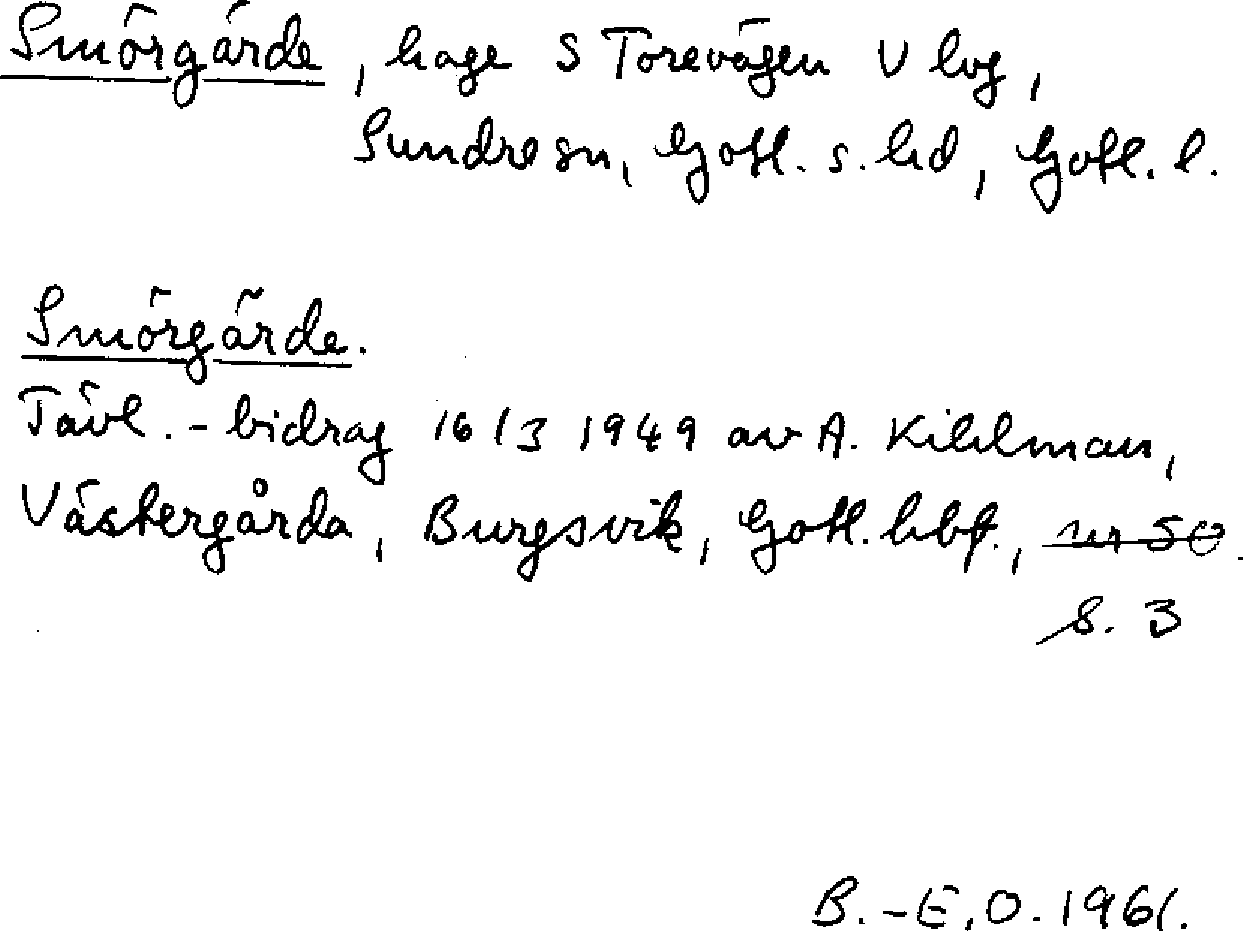 Smörgärde, hage S Torevägen V lvg,
Sundre sn, Gotl. s. hd, Gotl. l.
Smörgärde.
Tävl.-bidrag 16/3 1949 av A. Kihlman,
Västergårda, Burgsvik, Gotl. hbf., nr 50.
s. 3
B.-E. O. 1961.